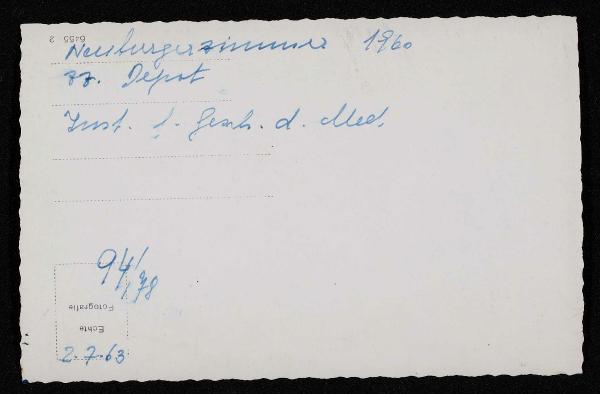 6455 2
Neuburgerzimmer 1960
zz. Depot
Inst. f. Gesch. d. Med.
94/178
Echte
Fotografie
2.7.63